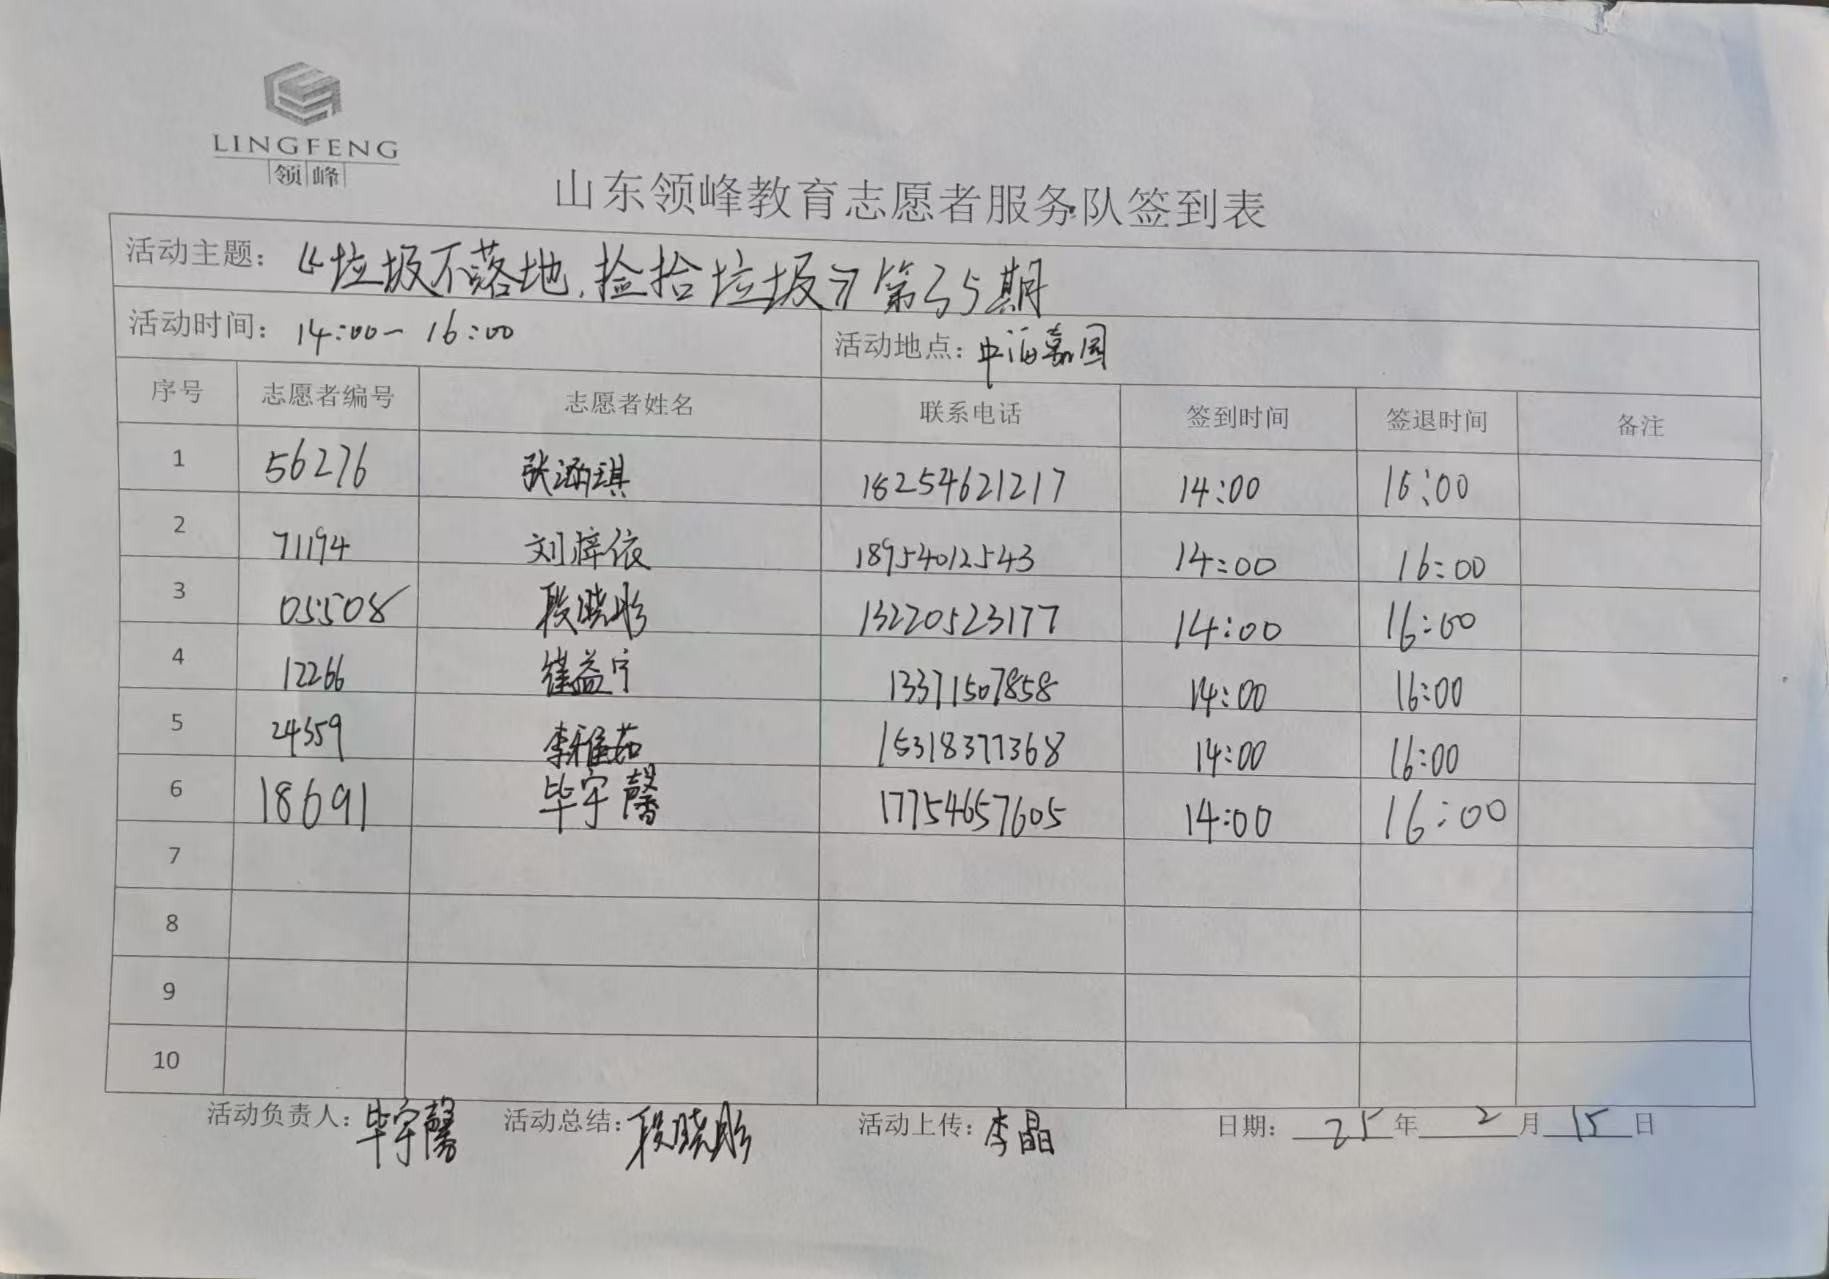 LINGFENG
领峰
山东领峰教育志愿者服务队签到表
活动主题：《垃圾不落地，捡拾垃圾》第35期
活动时间：14:00— 16:00 活动地点：中海嘉园
序号 志愿者编号 志愿者姓名 联系电话 签到时间 签退时间 备注
1 56276 张涵琪 18254621217 14:00 16:00
2 71194 刘梓依 18954012543 14:00 16:00
3 05508 段晓彤 13220523177 14:00 16:00
4 12266 崔益宁 13371507858 14:00 16:00
5 24359 李雅茹 15318377368 14:00 16:00
6 18691 毕宇馨 17754657605 14:00 16:00
7
8
9
10
活动负责人：毕宇馨 活动总结：段晓彤 活动上传：李晶 日期：25年2月15日